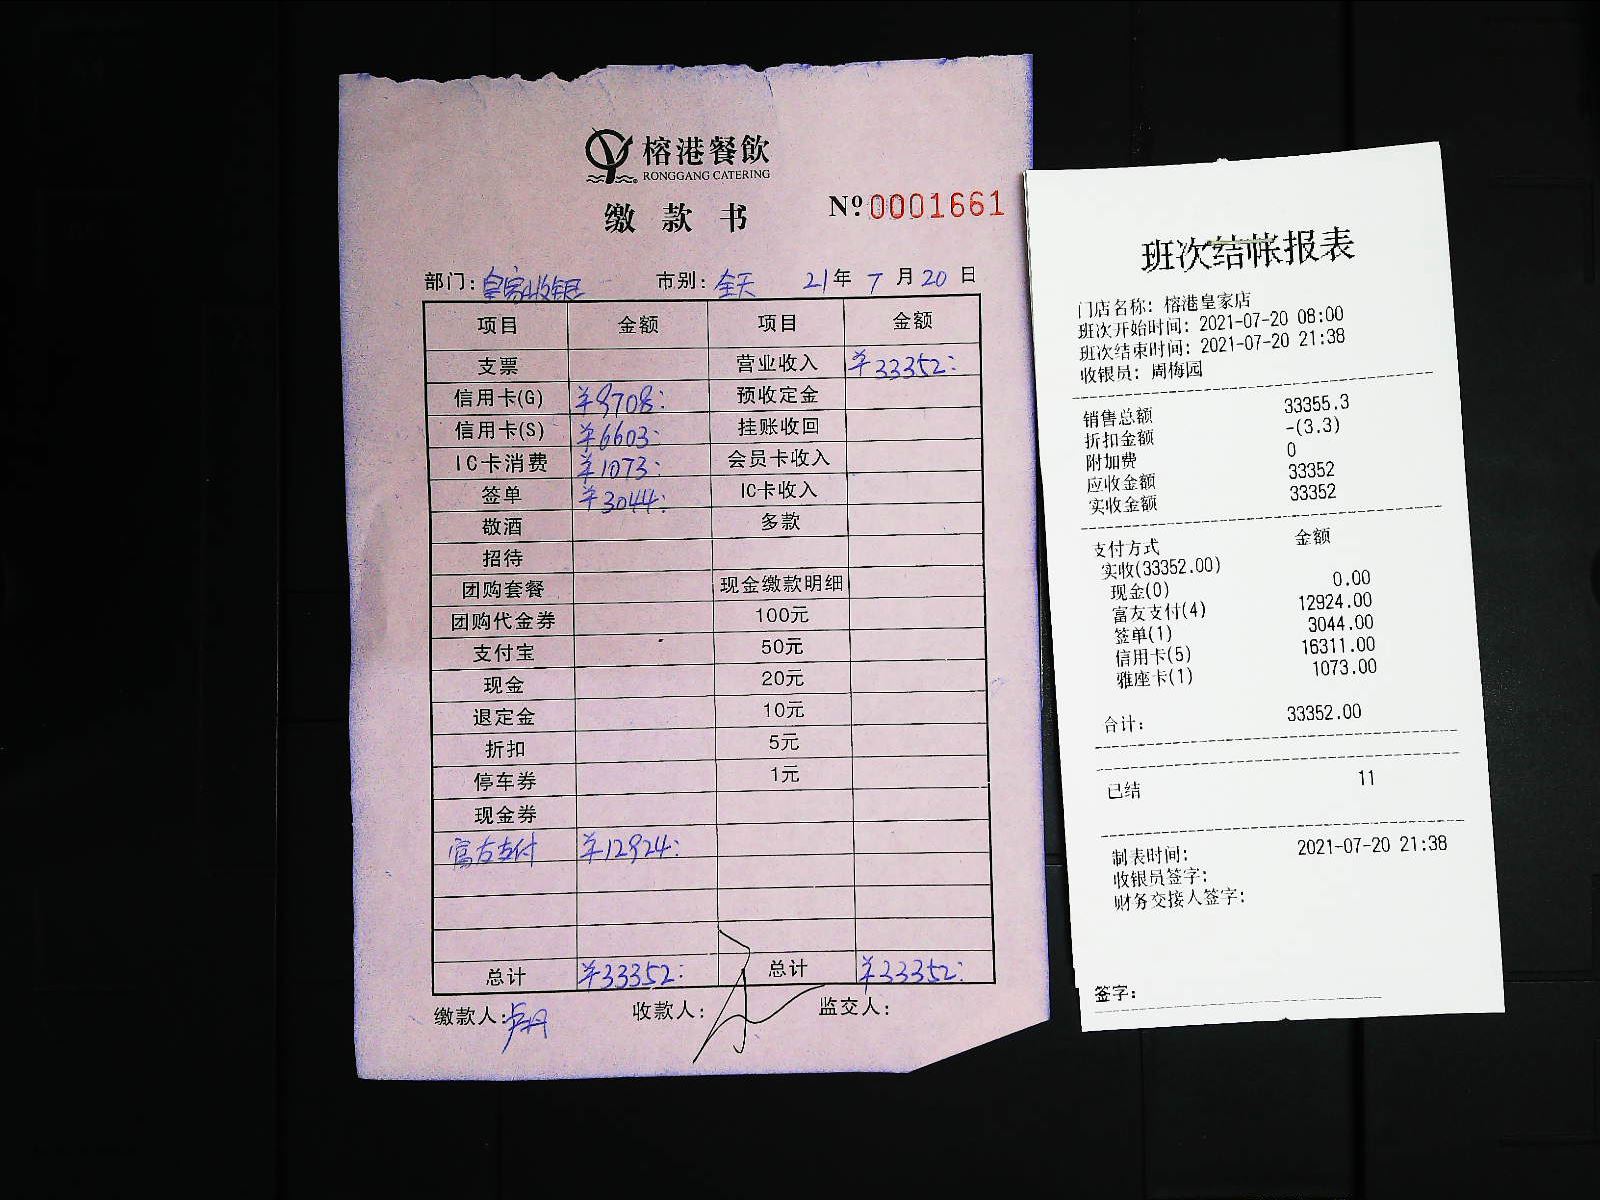 榕港餐飲
RONGGANG CATERING
缴款书
№0001661
部门:皇家收银 市别:全天 21年7月20日
项目 金额 项目 金额
支票 营业收入 ¥33352:
信用卡(G) ¥9708: 预收定金
信用卡(S) ¥6603: 挂账收回
IC卡消费 ¥1073: 会员卡收入
签单 ¥3044: IC卡收入
敬酒 多款
招待
团购套餐 现金缴款明细
团购代金券 100元
支付宝 50元
现金 20元
退定金 10元
折扣 5元
停车券 1元
现金券
富友支付 ¥12924:
总计 ¥33352: 总计 ¥33352:
缴款人:卢丹 收款人: 监交人:
班次结帐报表
门店名称: 榕港皇家店
班次开始时间: 2021-07-20 08:00
班次结束时间: 2021-07-20 21:38
收银员: 周梅园
销售总额 33355.3
折扣金额 -(3.3)
附加费 0
应收金额 33352
实收金额 33352
支付方式 金额
实收(33352.00)
现金(0) 0.00
富友支付(4) 12924.00
签单(1) 3044.00
信用卡(5) 16311.00
雅座卡(1) 1073.00
合计: 33352.00
已结 11
制表时间: 2021-07-20 21:38
收银员签字:
财务交接人签字:
签字: